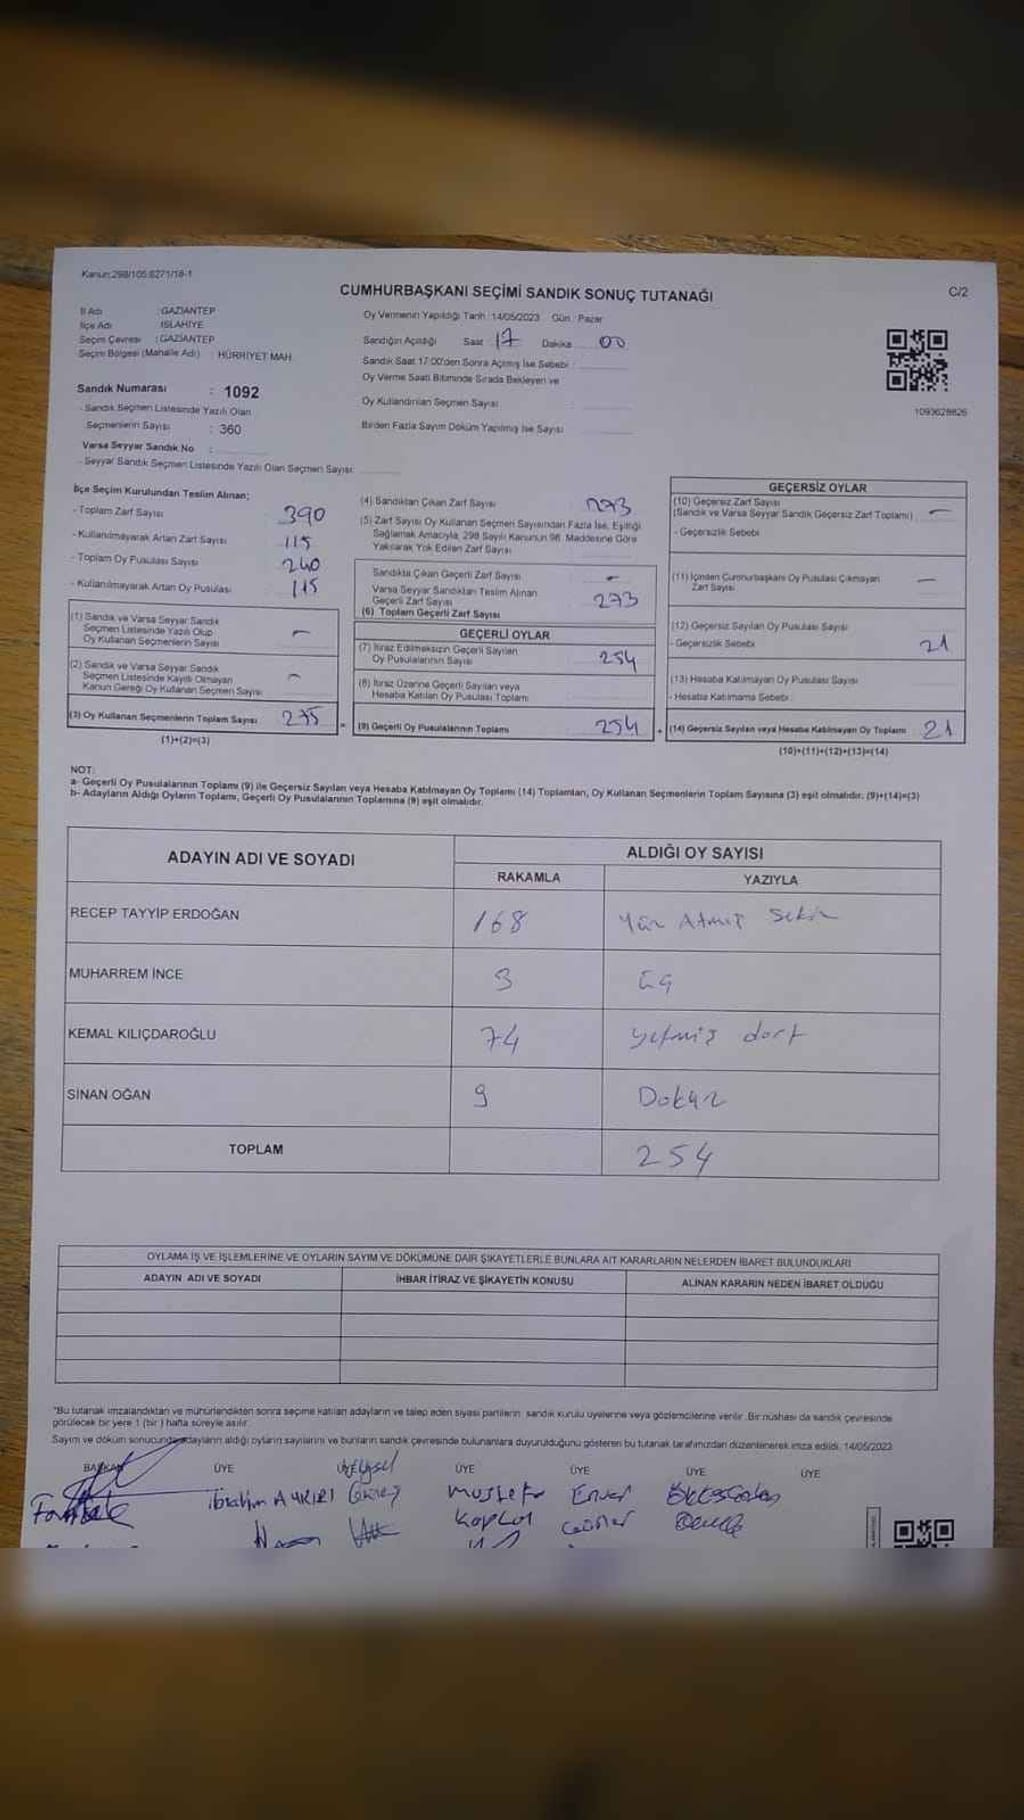 Kanun:298/105;6271/18-1
C/2
CUMHURBAŞKANI SEÇİMİ SANDIK SONUÇ TUTANAĞI
İl Adı : GAZİANTEP
İlçe Adı : İSLAHİYE
Seçim Çevresi : GAZİANTEP
Seçim Bölgesi (Mahalle Adı) : HÜRRİYET MAH.
Sandık Numarası : 1092
- Sandık Seçmen Listesinde Yazılı Olan
Seçmenlerin Sayısı : 360
Varsa Seyyar Sandık No :
- Seyyar Sandık Seçmen Listesinde Yazılı Olan Seçmen Sayısı:
Oy Vermenin Yapıldığı Tarih :14/05/2023 Gün : Pazar
Sandığın Açıldığı Saat 17 Dakika 00
Sandık Saat 17:00'den Sonra Açılmış İse Sebebi :
Oy Verme Saati Bitiminde Sırada Bekleyen ve
Oy Kullandırılan Seçmen Sayısı :
Birden Fazla Sayım Döküm Yapılmış İse Sayısı :
1093628626
İlçe Seçim Kurulundan Teslim Alınan;
- Toplam Zarf Sayısı : 390
- Kullanılmayarak Artan Zarf Sayısı : 115
- Toplam Oy Pusulası Sayısı : 240
- Kullanılmayarak Artan Oy Pusulası : 115
(1) Sandık ve Varsa Seyyar Sandık
Seçmen Listesinde Yazılı Olup
Oy Kullanan Seçmenlerin Sayısı : –
(2) Sandık ve Varsa Seyyar Sandık
Seçmen Listesinde Kayıtlı Olmayan
Kanun Gereği Oy Kullanan Seçmen Sayısı : –
(3) Oy Kullanan Seçmenlerin Toplam Sayısı : 275
(1)+(2)=(3)
(4) Sandıktan Çıkan Zarf Sayısı : 273
(5) Zarf Sayısı Oy Kullanan Seçmen Sayısından Fazla İse, Eşitliği
Sağlamak Amacıyla, 298 Sayılı Kanunun 98. Maddesine Göre
Yakılarak Yok Edilen Zarf Sayısı :
Sandıkta Çıkan Geçerli Zarf Sayısı : –
Varsa Seyyar Sandıktan Teslim Alınan
Geçerli Zarf Sayısı : 273
(6) Toplam Geçerli Zarf Sayısı
GEÇERLİ OYLAR
(7) İtiraz Edilmeksizin Geçerli Sayılan
Oy Pusulalarının Sayısı : 254
(8) İtiraz Üzerine Geçerli Sayılan veya
Hesaba Katılan Oy Pusulası Toplamı
= (9) Geçerli Oy Pusulalarının Toplamı : 254 +
GEÇERSİZ OYLAR
(10) Geçersiz Zarf Sayısı
(Sandık ve Varsa Seyyar Sandık Geçersiz Zarf Toplamı) : –
- Geçersizlik Sebebi
(11) İçinden Cumhurbaşkanı Oy Pusulası Çıkmayan
Zarf Sayısı : –
(12) Geçersiz Sayılan Oy Pusulası Sayısı
- Geçersizlik Sebebi : 21
(13) Hesaba Katılmayan Oy Pusulası Sayısı
- Hesaba Katılmama Sebebi :
(14) Geçersiz Sayılan veya Hesaba Katılmayan Oy Toplamı : 21
(10)+(11)+(12)+(13)=(14)
NOT:
a- Geçerli Oy Pusulalarının Toplamı (9) ile Geçersiz Sayılan veya Hesaba Katılmayan Oy Toplamı (14) Toplamları, Oy Kullanan Seçmenlerin Toplam Sayısına (3) eşit olmalıdır. (9)+(14)=(3)
b- Adayların Aldığı Oyların Toplamı, Geçerli Oy Pusulalarının Toplamına (9) eşit olmalıdır.
ADAYIN ADI VE SOYADI
ALDIĞI OY SAYISI
RAKAMLA YAZIYLA
RECEP TAYYİP ERDOĞAN 168 Yüz Atmış Sekiz
MUHARREM İNCE 3 Üç
KEMAL KILIÇDAROĞLU 74 Yetmiş dört
SİNAN OĞAN 9 Dokuz
TOPLAM 254
OYLAMA İŞ VE İŞLEMLERİNE VE OYLARIN SAYIM VE DÖKÜMÜNE DAİR ŞİKAYETLERLE BUNLARA AİT KARARLARIN NELERDEN İBARET BULUNDUKLARI
ADAYIN ADI VE SOYADI İHBAR İTİRAZ VE ŞİKAYETİN KONUSU ALINAN KARARIN NEDEN İBARET OLDUĞU
*Bu tutanak imzalandıktan ve mühürlendikten sonra seçime katılan adayların ve talep eden siyasi partilerin sandık kurulu üyelerine veya gözlemcilerine verilir. Bir nüshası da sandık çevresinde
görülecek bir yere 1 (bir) hafta süreyle asılır.
Sayım ve döküm sonucunda adayların aldığı oyların sayılarını ve bunların sandık çevresinde bulunanlara duyurulduğunu gösteren bu tutanak tarafımızdan düzenlenerek imza edildi. 14/05/2023
BAŞKAN ÜYE ÜYE ÜYE ÜYE ÜYE ÜYE
İbrahim AYKIRI Mustafa Enver
Kaplan Güner